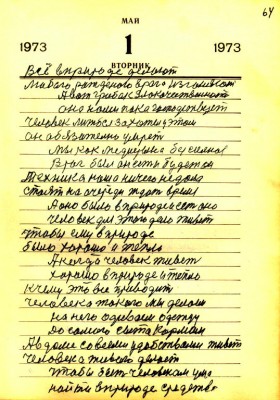 64
МАЙ
1973 1 1973
ВТОРНИК
Всё в природе делают
любого рожденого врага изгоняют
А вот грибок злокачественности
она нами пока господствует
Человек литься захочит, этом
он обязательно умрет
Мы как медицына бусилная
Враг был он есть будет он
Техника наша ничего не дала
стоят на очереди ждат время
А оно было в природе и есть оно
Человек для этого дела живет
чтобы ему в природе
было хорошо и тепло
А когда человек живет
хорошо в природе и тепло
к чему это все приводит
Человека такого мы делаем
на него одеваем одежду
До самого сыта кормим
А в доме со всеми удобствами живет
Человека живого делает
чтобы быть человеком ума
найти в природе средство